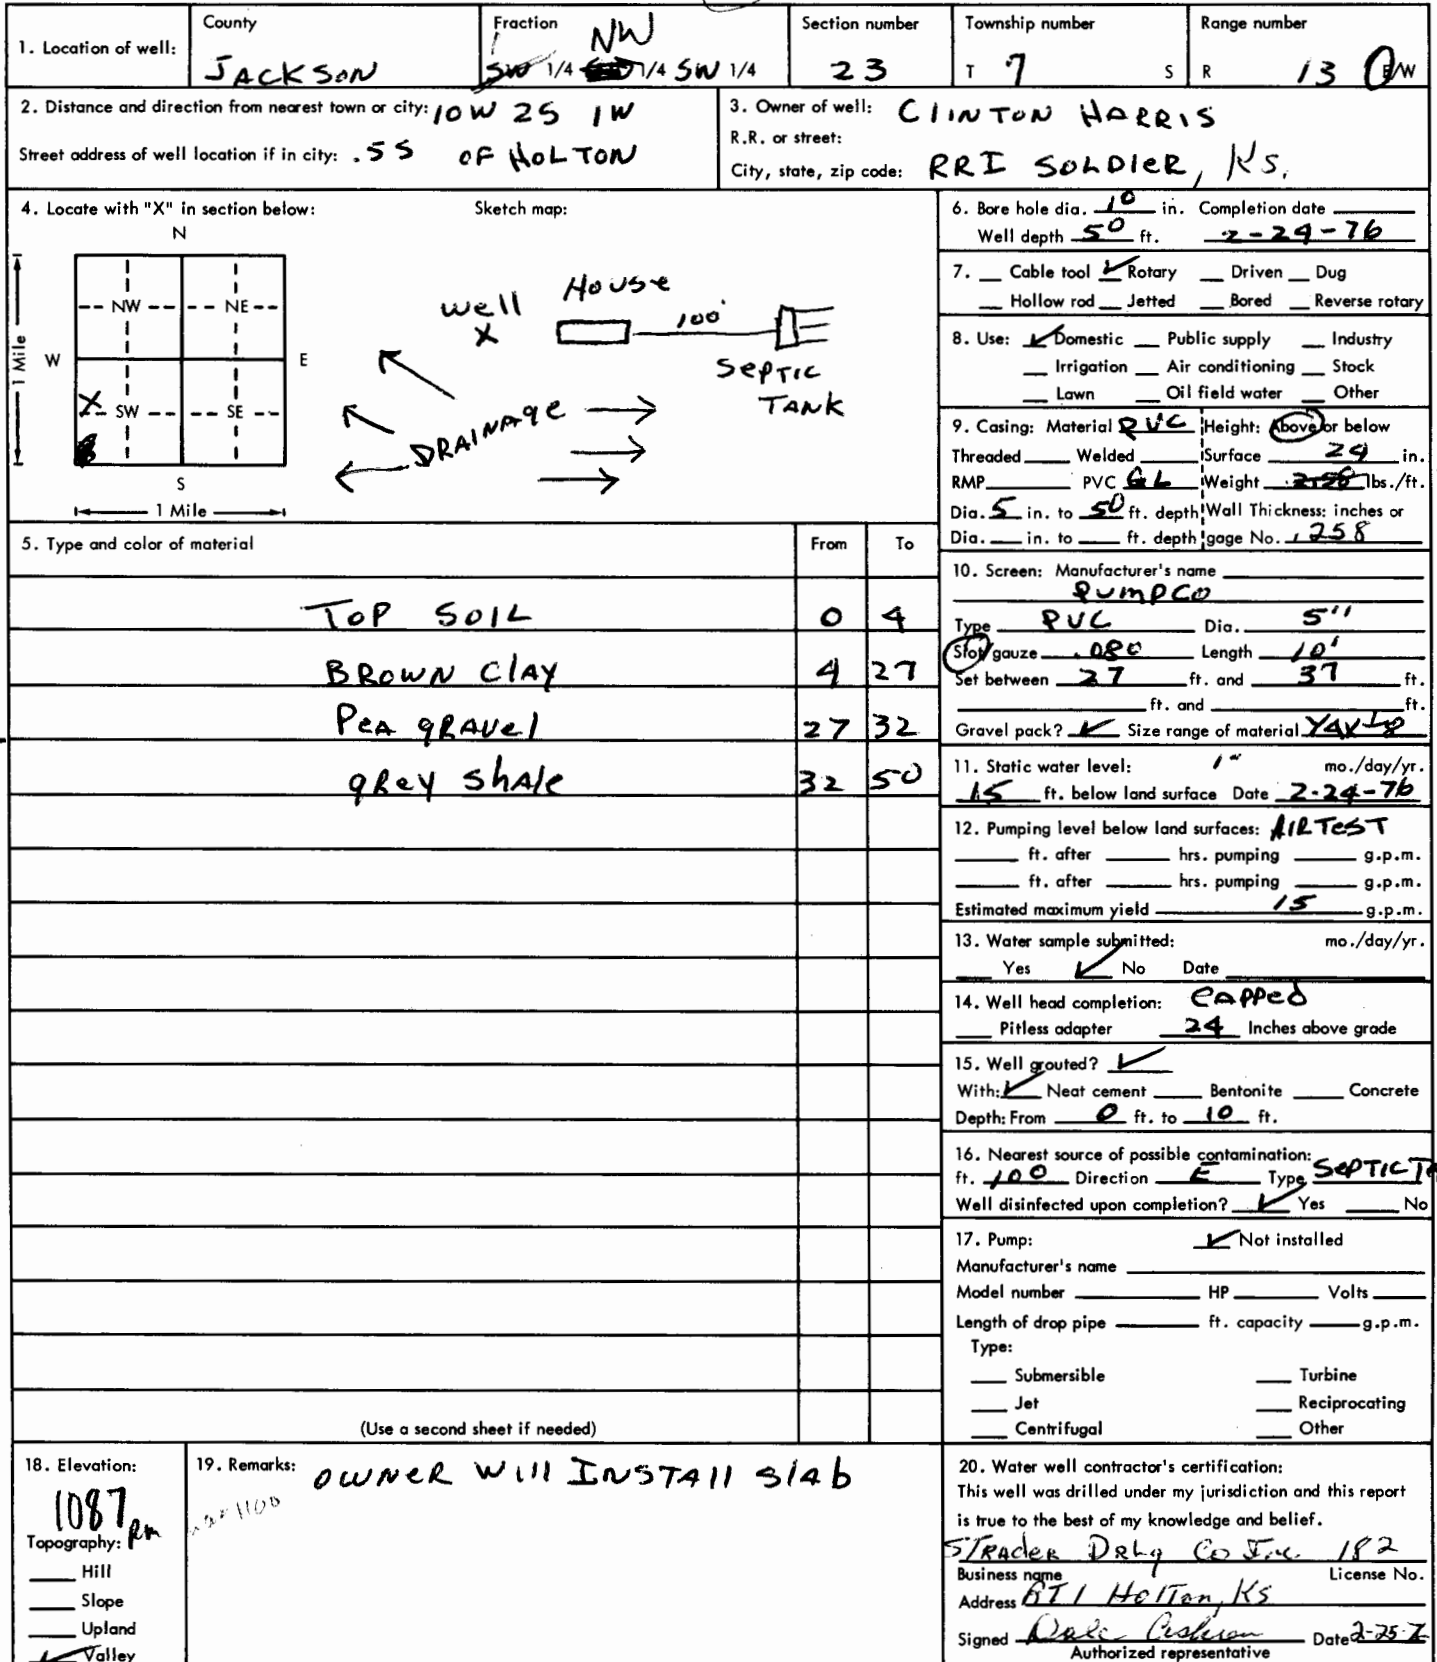 County
Fraction
Section number
Township number
Range number
1. Location of well:
JACKSON
NW
SW 1/4 1/4 SW 1/4
23
T 7 S
R 13 E/W
2. Distance and direction from nearest town or city: 10W 2S 1W
Street address of well location if in city: .5S OF HOLTON
3. Owner of well: CLINTON HARRIS
R.R. or street:
City, state, zip code: RRI SOLDIER, KS.
4. Locate with "X" in section below:
Sketch map:
N
NW NE
W E
1 Mile
X SW SE
S
1 Mile
Well
X
House
100'
SEPTIC
TANK
DRAINAge
5. Type and color of material From To
TOP SOIL 0 4
BROWN Clay 4 27
Pea gravel 27 32
grey shale 32 50
(Use a second sheet if needed)
6. Bore hole dia. 10 in. Completion date
Well depth 50 ft. 2-24-76
7. Cable tool ✓ Rotary Driven Dug
Hollow rod Jetted Bored Reverse rotary
8. Use: ✓ Domestic Public supply Industry
Irrigation Air conditioning Stock
Lawn Oil field water Other
9. Casing: Material PVC Height: Above or below
Threaded Welded Surface 24 in.
RMP PVC GL Weight lbs./ft.
Dia. 5 in. to 50 ft. depth Wall Thickness: inches or
Dia. in. to ft. depth gage No. .258
10. Screen: Manufacturer's name
PUMPCO
Type PVC Dia. 5"
Slot/gauze .080 Length 10'
Set between 27 ft. and 37 ft.
ft. and ft.
Gravel pack? ✓ Size range of material
11. Static water level: mo./day/yr.
15 ft. below land surface Date 2-24-76
12. Pumping level below land surfaces: AIR TEST
ft. after hrs. pumping g.p.m.
ft. after hrs. pumping g.p.m.
Estimated maximum yield 15 g.p.m.
13. Water sample submitted: mo./day/yr.
Yes ✓ No Date
14. Well head completion: CAPPED
Pitless adapter 24 Inches above grade
15. Well grouted? ✓
With: ✓ Neat cement Bentonite Concrete
Depth: From 0 ft. to 10 ft.
16. Nearest source of possible contamination:
ft. 100 Direction E Type SEPTIC
Well disinfected upon completion? ✓ Yes No
17. Pump: ✓ Not installed
Manufacturer's name
Model number HP Volts
Length of drop pipe ft. capacity g.p.m.
Type:
Submersible Turbine
Jet Reciprocating
Centrifugal Other
18. Elevation:
1087
Topography:
Hill
Slope
Upland
✓ Valley
19. Remarks: OWNER Will INSTAll Slab
20. Water well contractor's certification:
This well was drilled under my jurisdiction and this report
is true to the best of my knowledge and belief.
STRADER DRLg Co Inc. 182
Business name License No.
Address RT 1 Holton, KS
Signed Dale Date 2-25-7
Authorized representative